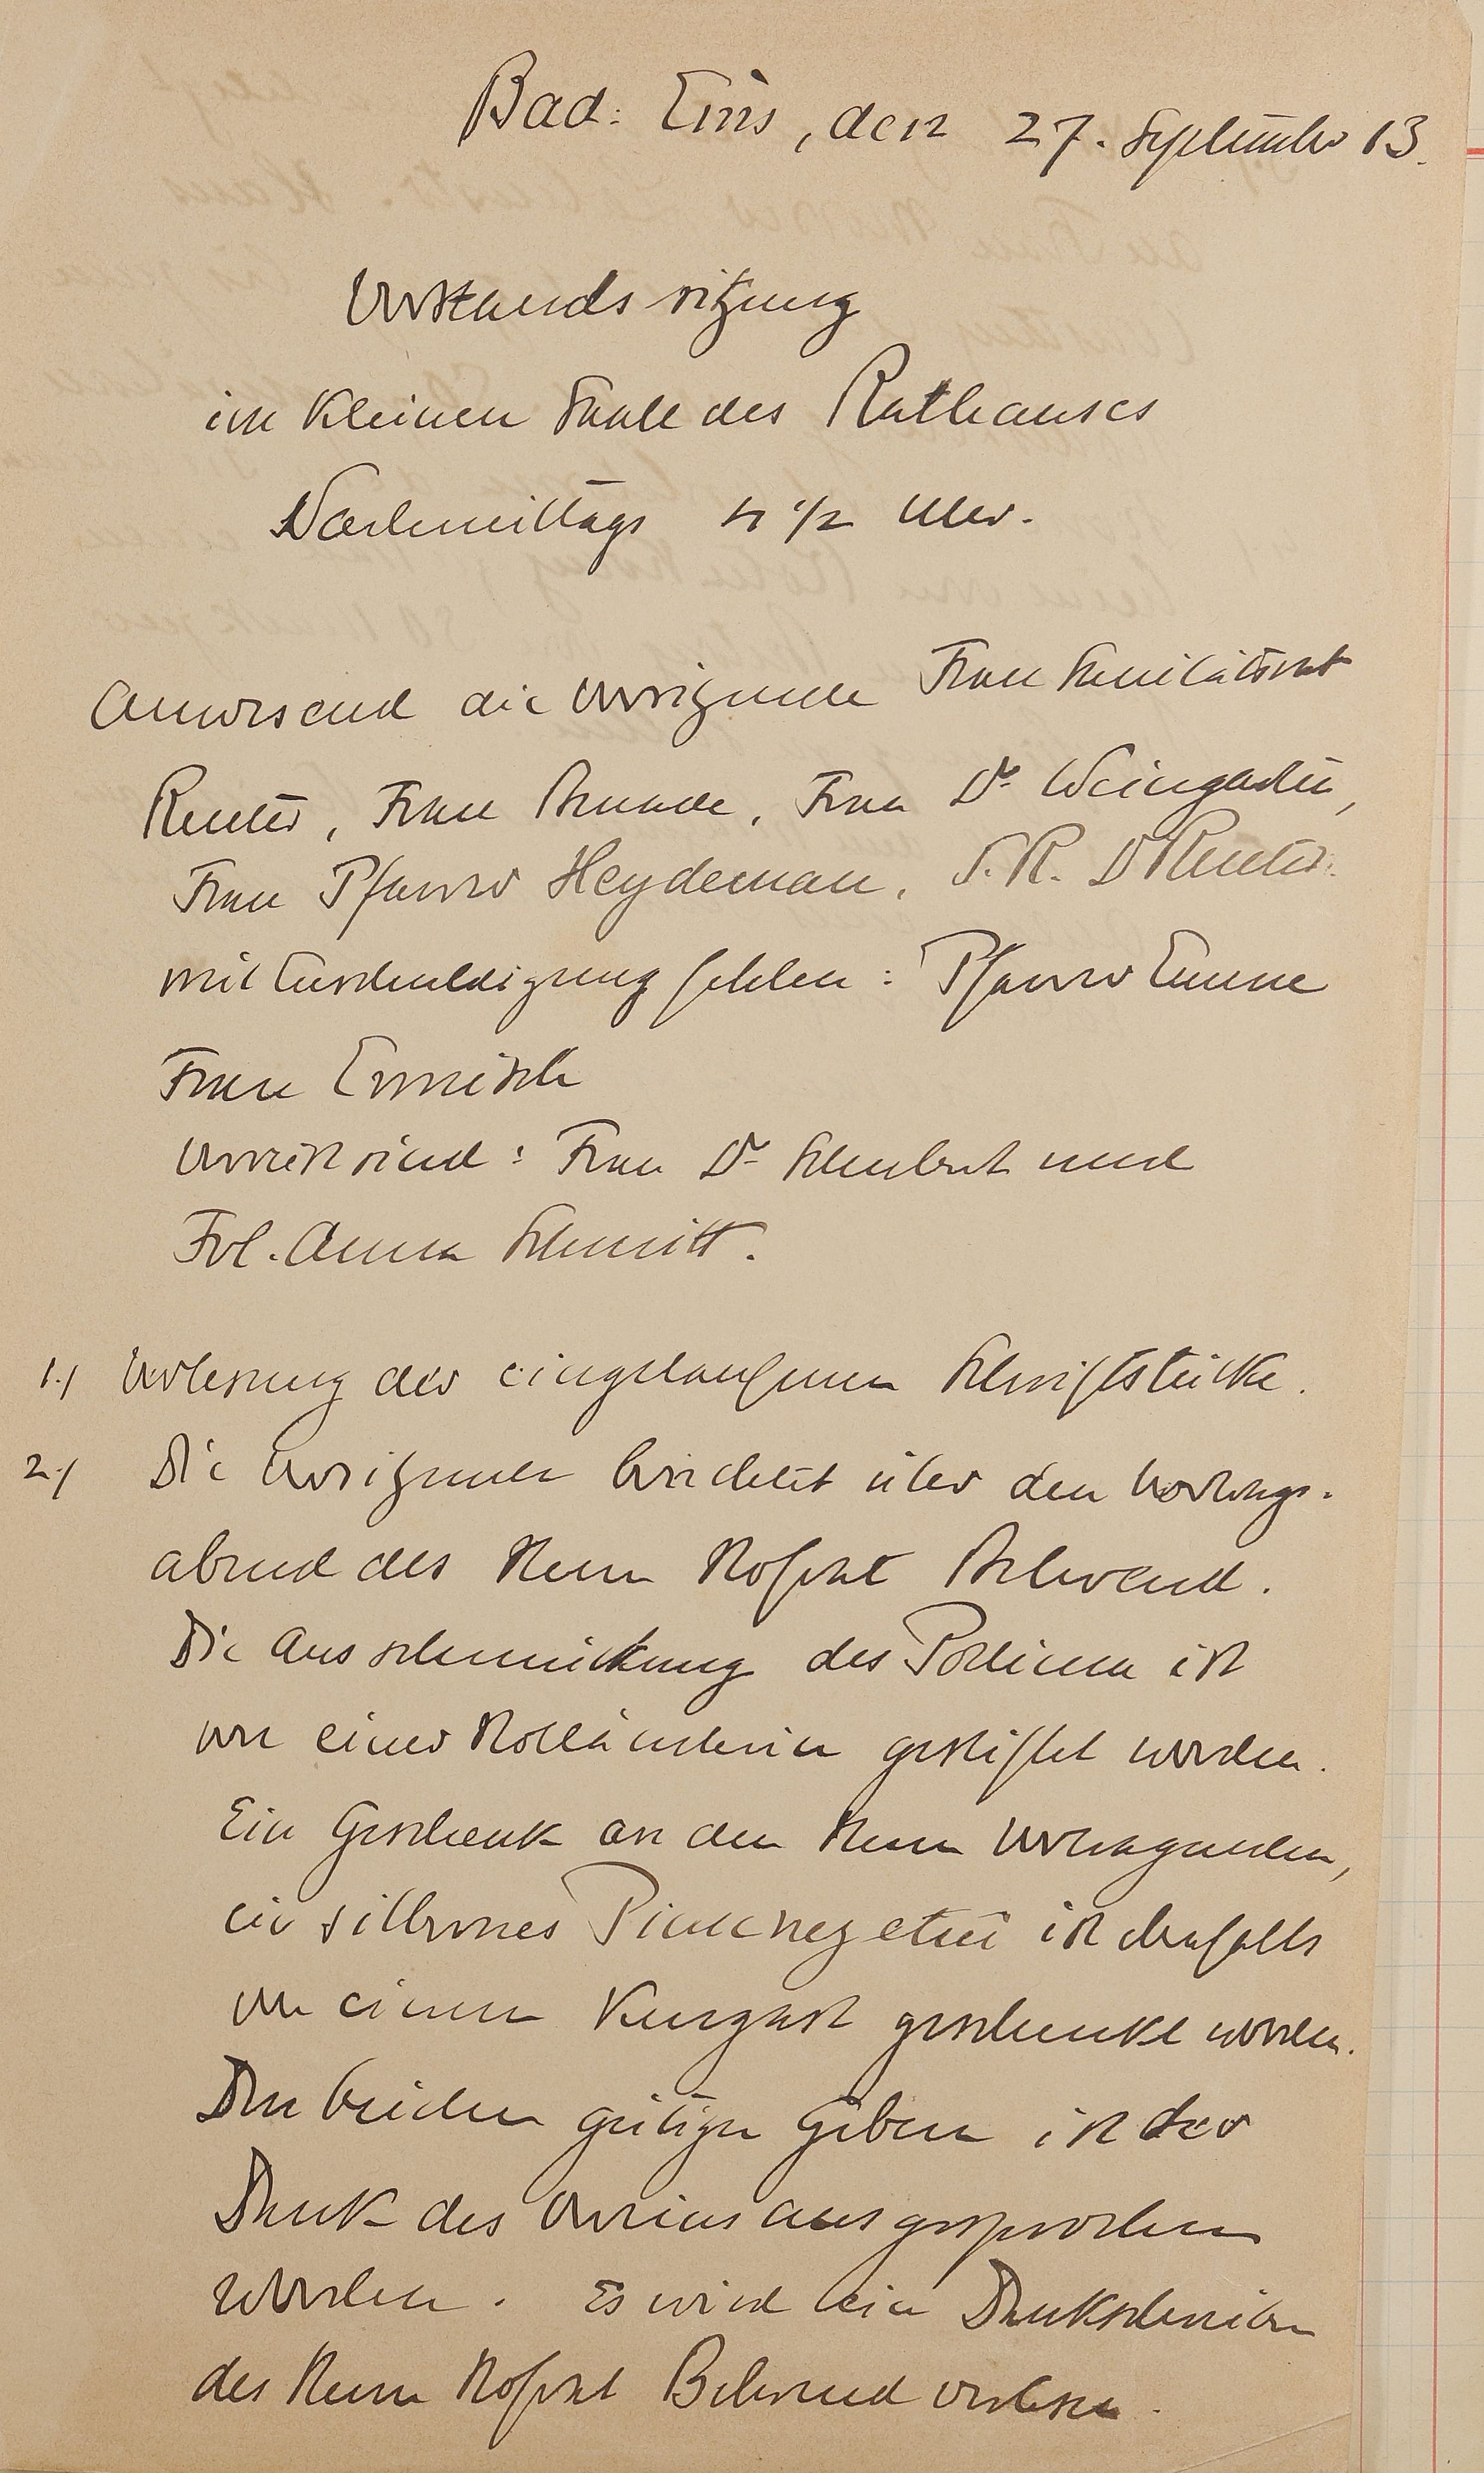 Bad: Ems, den 27. September 13.
Vorstandssitzung
im kleinen Saale des Rathauses
Nachmittags 5 1/2 Uhr.
Anwesend die Vorsitzende Frau Sanitätsrat
Reuter, Frau Balzer, Frau Dr Weingarten,
Frau Pfarrer Heydeman, S. R. Dr Reuter.
mit Entschuldigung fehlen: Pfarrer Emme
Frau Ermisch
verreist sind: Frau Dr Schubert und
Frl. Anna Schmitt.
1./ Verlesung der eingelaufenen Schriftstücke.
2./ Die Vorsitzende berichtet über den Vortrags-
abend des Herrn Hofrat Behrend.
Die Ausschmückung des Podiums ist
von einer Holländerin gestiftet worden.
Ein Geschenk an den Herrn Vortragenden,
ein silbernes etui ist ebenfalls
von einem Kurgast geschenkt worden.
Den beiden gütigen Gebern ist der
Dank des Vereins ausgesprochen
worden. Es wird ein Dankschreiben
des Herrn Hofrat Behrend verlesen.